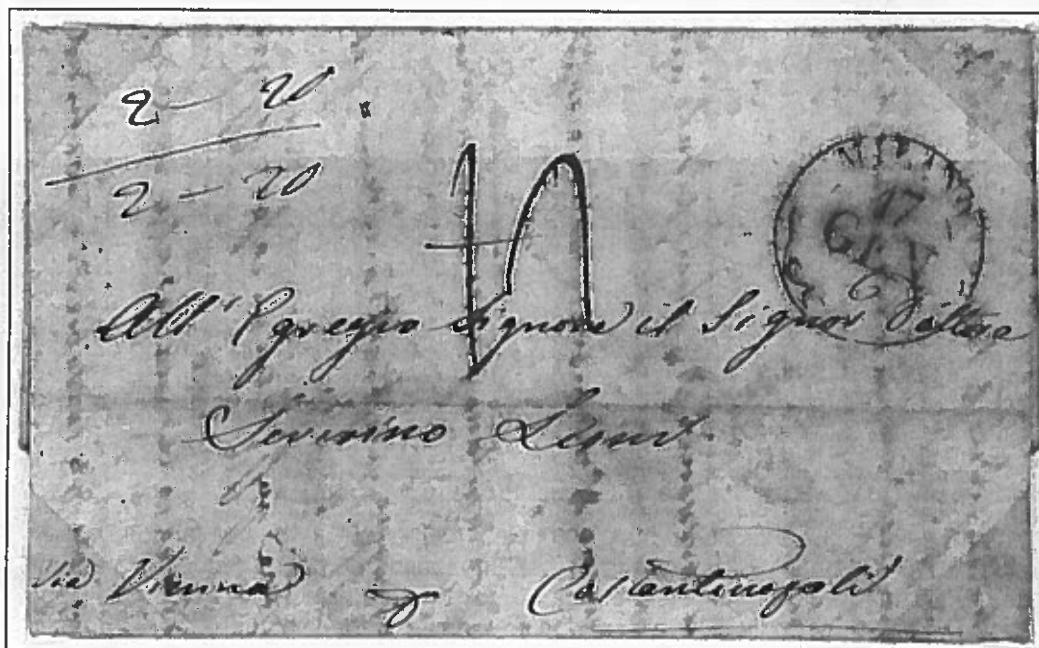 2 — 20
2 — 20
MILANO
17
GEN
All' Egregio Signore il Signor Dottore
Severino
via Vienna Costantinopoli